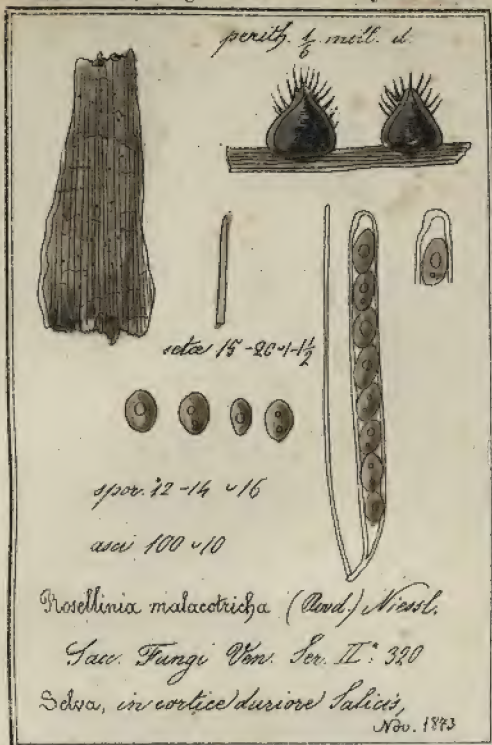 perith. 1/6 mill. d.
setae 15-20-1-1½
spor. 12-14 ⌣ 16
asci 100 ⌣ 10
Rosellinia malacotricha (Awd.) Niessl.
Sacc. Fungi Ven. Ser. IIª: 320
Selva, in cortice duriore Salicis,
Nov. 1873